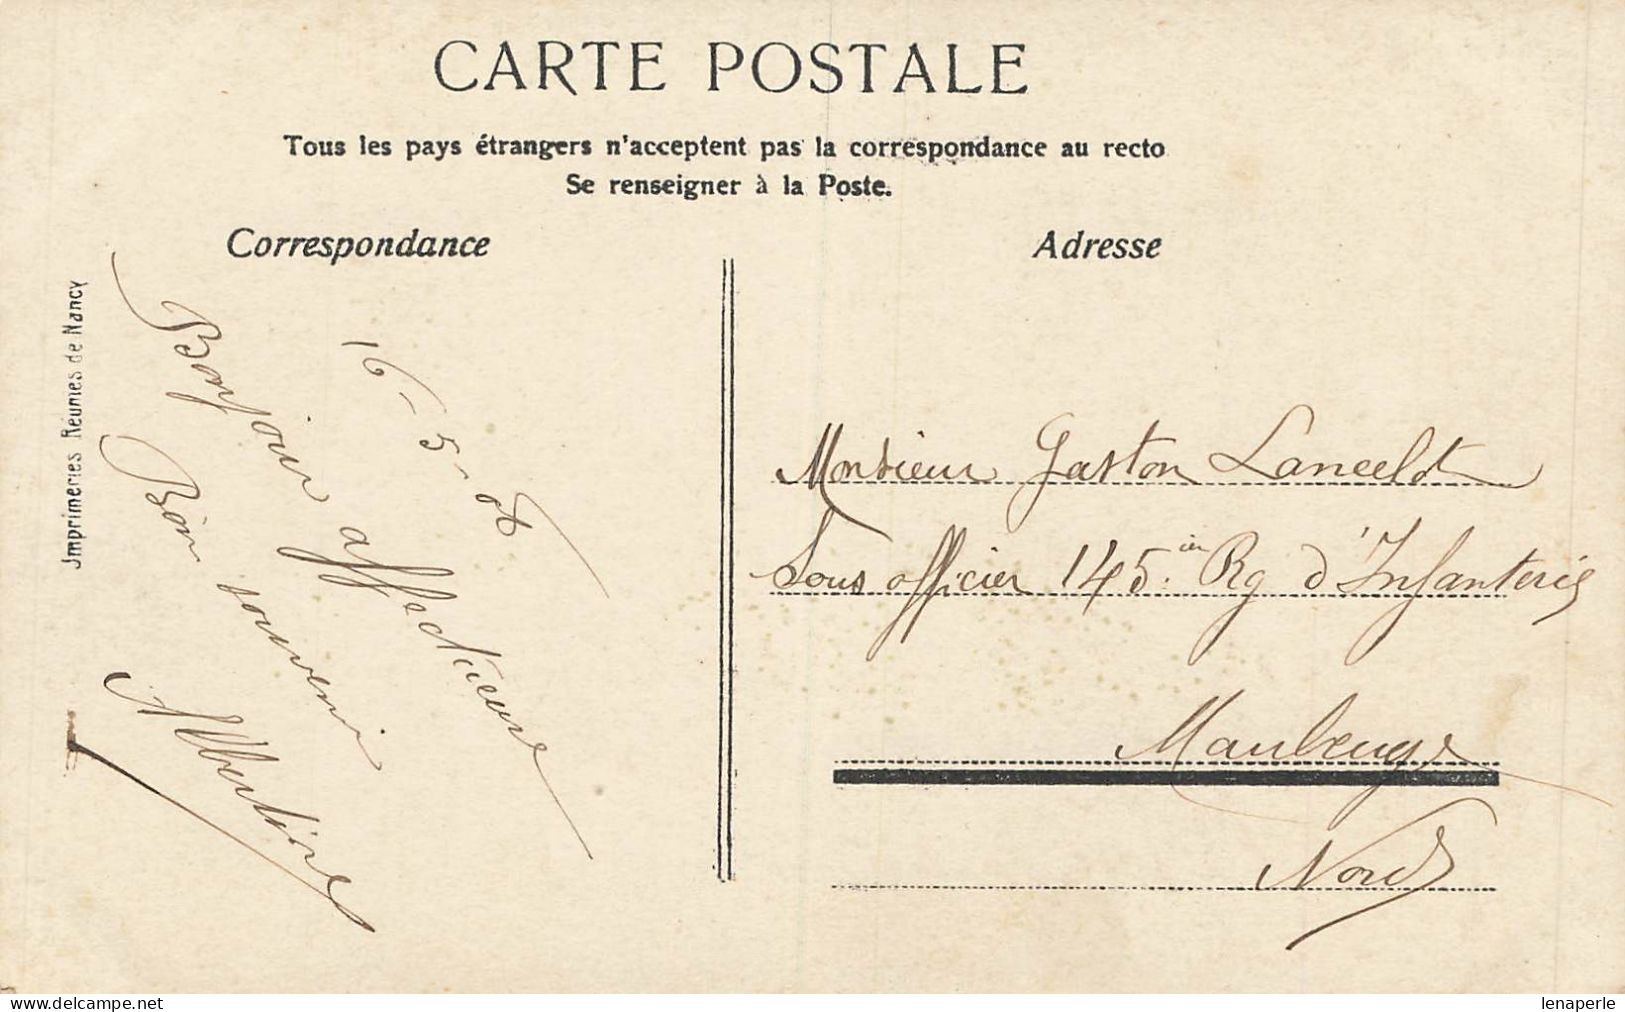 CARTE POSTALE
Tous les pays étrangers n'acceptent pas la correspondance au recto
Se renseigner à la Poste.
Correspondance
Adresse
Imprimeries Réunies de Nancy
16-5-08
Bonjour affectueux
Bon souvenir
Albertine
Monsieur Gaston Lancelot
Sous officier 145.ie Rg d'Infanterie
Maubeuge
Nord
www.delcampe.net
lenaperle